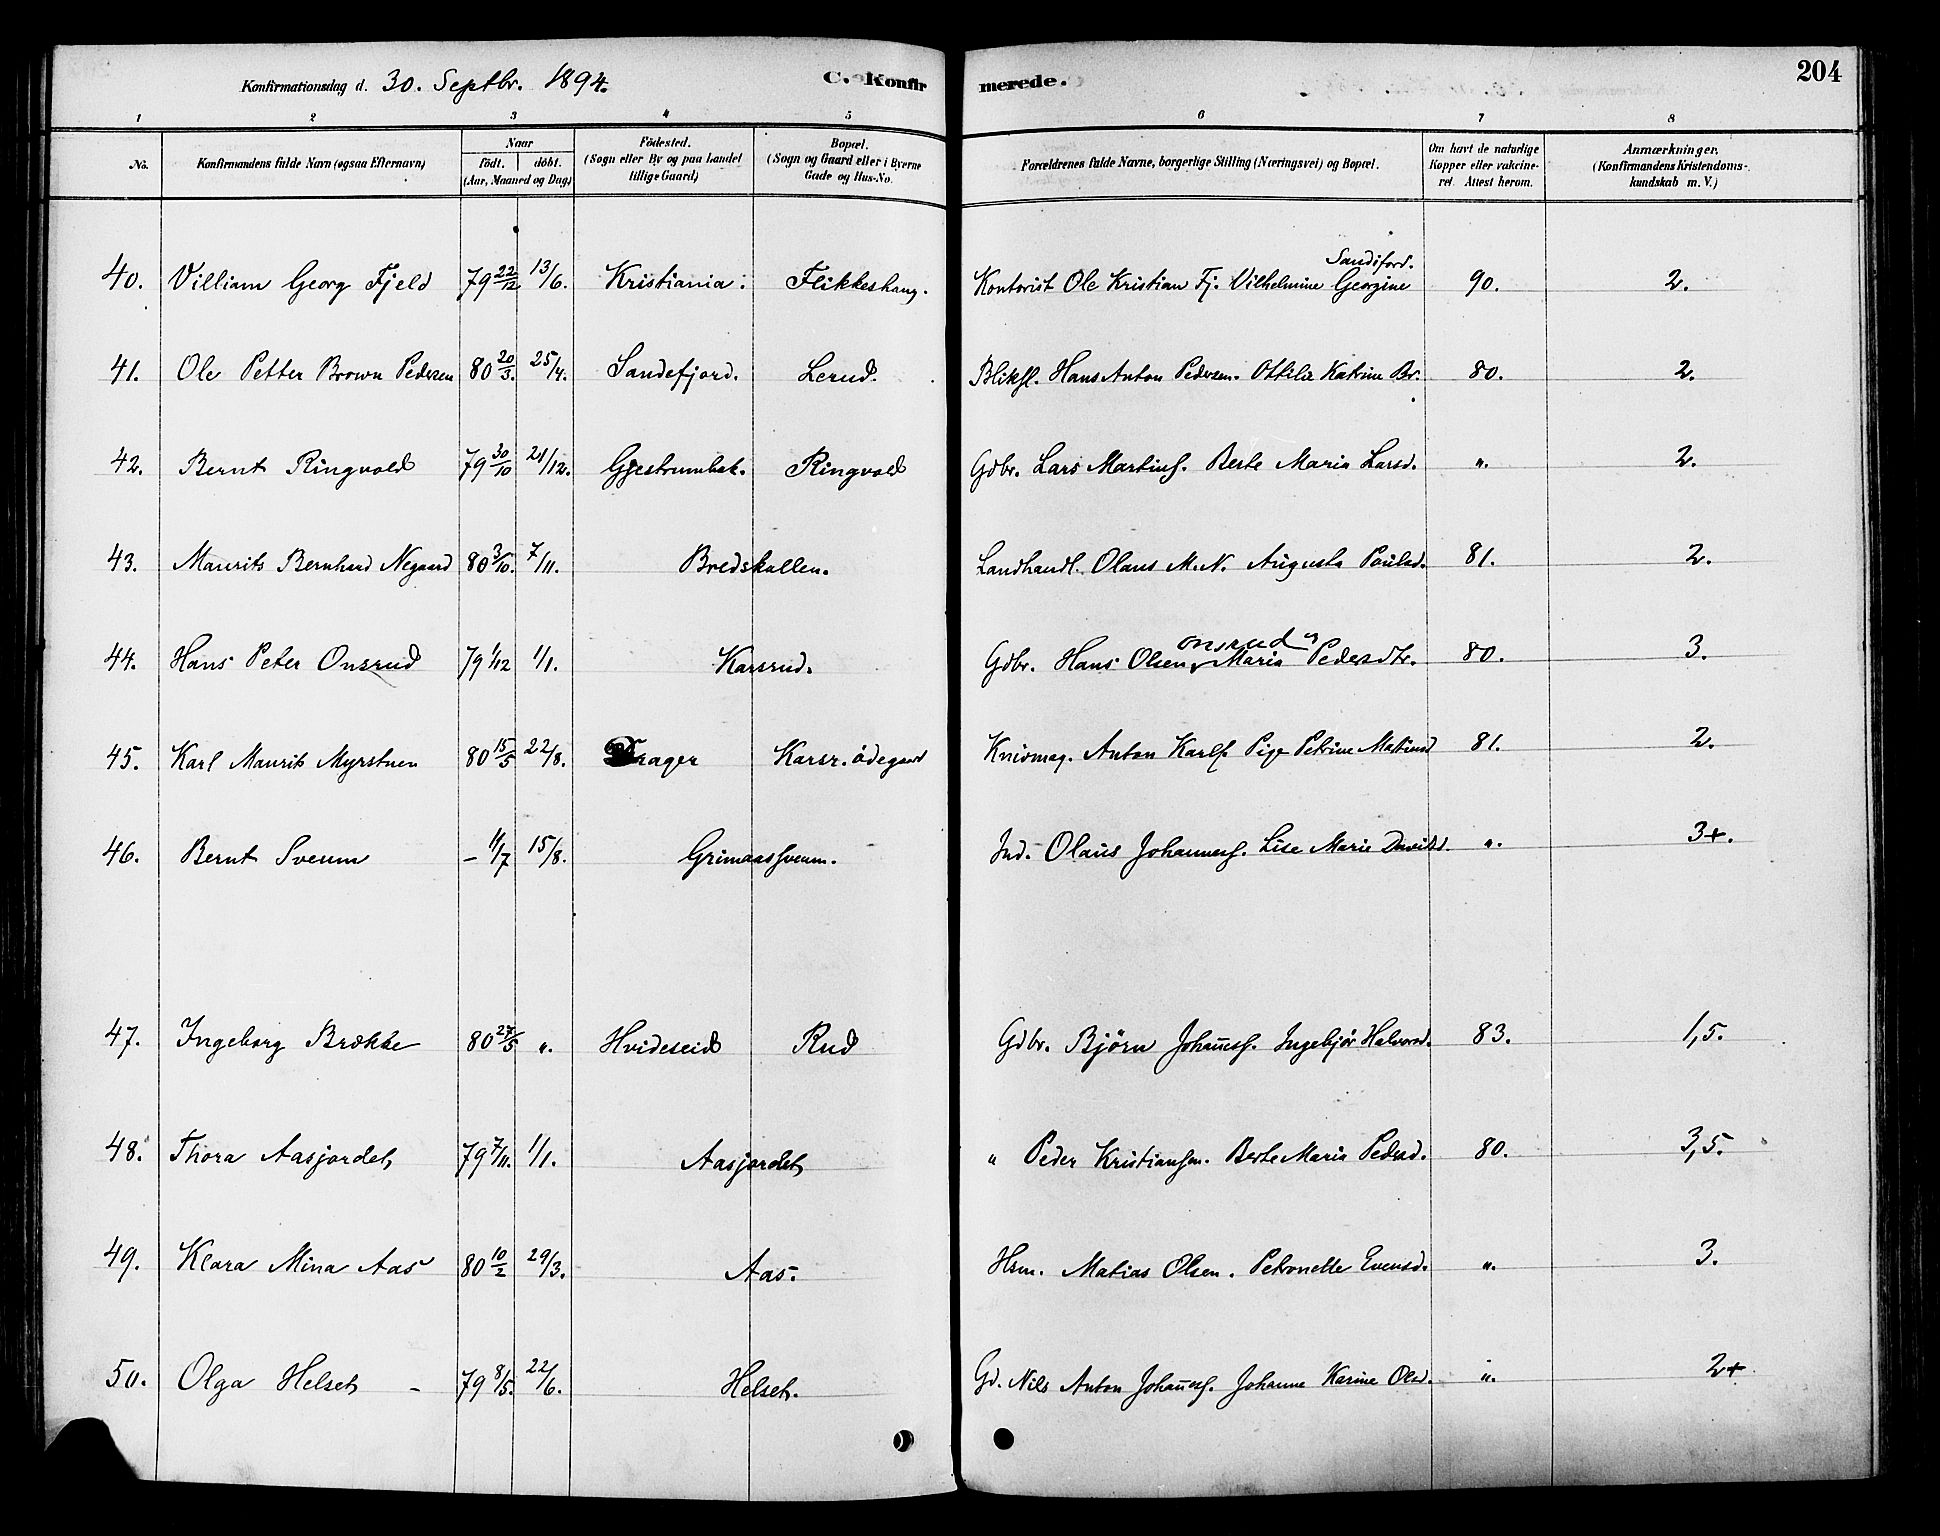 Konfirmationsdag d. 30. Septbr. 1894. C. Konfirmerede. 204
1 2 3 4 5 6 7 8
No. Konfirmandens fulde Navn (ogsaa Efternavn) Naar født. døbt. (Aar, Maaned og Dag) Fødested. (Sogn eller By og paa Landet tillige Gaard) Bopæl. (Sogn og Gaard eller i Byerne Gade og Hus-No. Forældrenes fulde Navne, borgerlige Stilling (Næringsvei) og Bopæl. Om havt de naturlige Kopper eller vakcineret. Attest herom. Anmærkninger, (Konfirmandens Kristendomskundskab m. V.)
Sandiford.
40. Villiam Georg Fjeld 79 22/12 13/6. Kristiania. Flikkeshaug. Kontorist Ole Kristian Fj. Vilhelmine Georgine 90. 2.
41. Ole Petter Brown Pedersen 80 20/3. 25/4. Sandefjord. Lerud. Bliksl. Hans Anton Pedersen. Ottilie Katrine Br. 80. 2.
42. Bernt Ringvold 79 30/10 21/12. Gjestrumbak. Ringvold Gdbr. Lars Martins. Berte Maria Larsd. " 2.
43. Maurits Bernhard Negaard 80 3/10. 7/11. Bredskallen. Landhandl. Olaus M. N. Augusta Paulsd. 81. 2.
44. Hans Peter Onsrud 79 1/12 1/1. Karsrud. Gdbr. Hans Olsen Onsrud " Maria Pedersdtr. 80. 3.
45. Karl Maurits Myrstuen 80 15/5 22/8. Trager Karsr. ödegaard Knivmag. Anton Karls. Pige Petrine Matiasd 81. 2.
46. Bernt Sveum – 11/7 15/8. Grimaassveum. Ind. Olaus Johannes. Lise Marie Davidsd. " 3+.
47. Ingeborg Brække 80 27/5 " Hvideseid Rud Gdbr. Björn Johaness. Ingebjör Halvorsd. 83. 1,5.
48. Thora Aasjordet 79 7/11. 1/1. Aasjordet " Peder Kristiansen. Berte Maria Pedersd. 80. 3,5.
49. Klara Mina Aas 80 10/2 29/3. Aas. Hsm. Matias Olsen. Petronelle Evensd. " 3.
50. Olga Helset – 79 8/5. 22/6. Helset. Gd. Nils Anton Johaness. Johanne Karine Olsd. " 2+